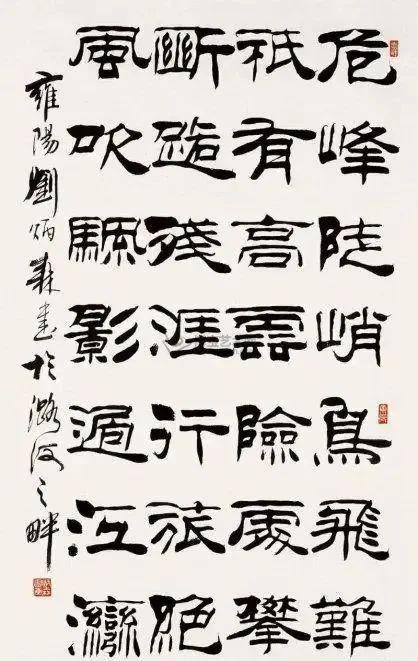 危峰陡峭鳥飛難
祇有高雲險處攀
斷路殘涯行旅絕
風吹颿影過江灣
雍陽劉炳森書於潞河之畔